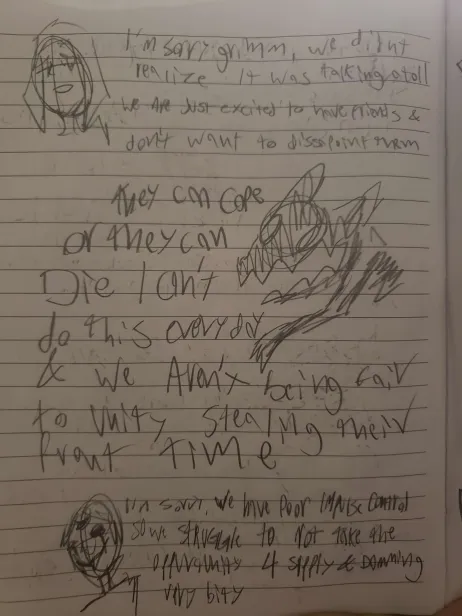 I'm sorry grimm, we didnt
realize it was taking a toll
we are just excited to have friends &
don't want to dissapoint them
they can cope
or they can
Die I can't
do this everyday
& we Aren't being fair
to Unity stealing their
front time
I'm sorry, we have poor impulse control
so we struggle to not take the
opportunity 4 supply &
very bity